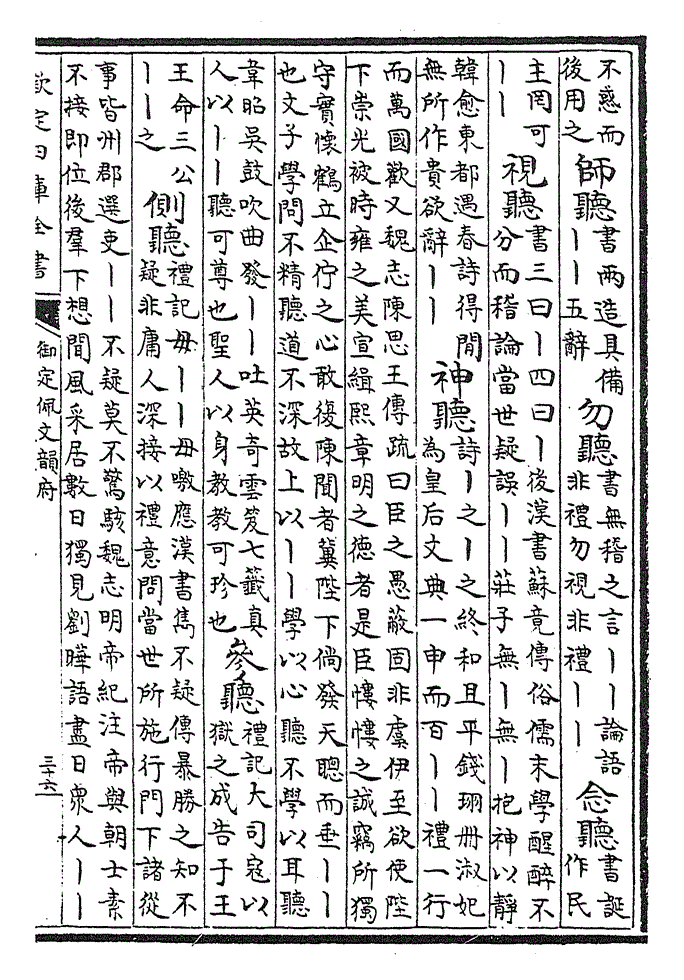 不惑而後用之 師聽 書兩造具備丨丨五辭 勿聽 書無稽之言丨丨論語非禮勿視非禮丨丨 念聽 書誕作民
主罔可丨丨 視聽 書三曰丨四曰丨後漢書蘇竟傳俗儒末學醒醉不分而稽論當世疑誤丨丨莊子無丨無丨抱神以靜
韓愈東都遇春詩得閒無所作貴欲辭丨丨 神聽 詩丨之丨之終和且平錢珝冊淑妃為皇后文典一申而百丨丨禮一行
而萬國歡又魏志陳思王傳疏曰臣之愚蔽固非虞伊至欲使陛
下崇光被時雍之美宣緝熙章明之德者是臣慺慺之誠竊所獨
守實懷鶴立企佇之心敢復陳聞者冀陛下倘發天聰而垂丨丨
也文子學問不精聽道不深故上以丨丨學以心聽不學以耳聽
韋昭吳鼓吹曲發丨丨吐英奇雲笈七籤真人以丨丨聽可尊也聖人以身教教可珍也 參聽 禮記大司寇以獄之成告于王
王命三公丨丨之 側聽 禮記毋丨丨毋噭應漢書雋不疑傳暴勝之知不疑非庸人深接以禮意問當世所施行門下諸從
事皆州郡選吏丨丨不疑莫不驚駭魏志明帝紀注帝與朝士素
不接即位後羣下想聞風采居數日獨見劉曄語盡日衆人丨丨
欽定四庫全書
御定佩文韻府
三十六